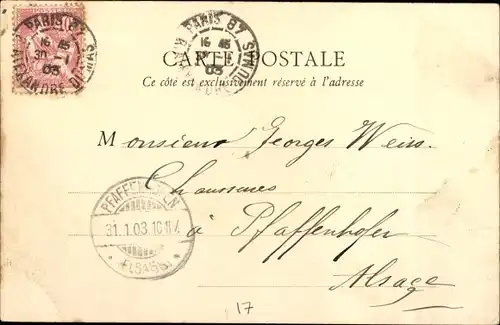 PARIS 87
16 45
30 -1
03
R. ALEXANDRE DUMAS
PARIS 87
16 45
03
CARTE POSTALE
Ce côté est exclusivement réservé à l'adresse
Monsieur Georges Weiss
Chaussures
à Pfaffenhofen
Alsace
PFAFFENHOFEN
31.1.03.10-11V.
* (ELSASS) *
17